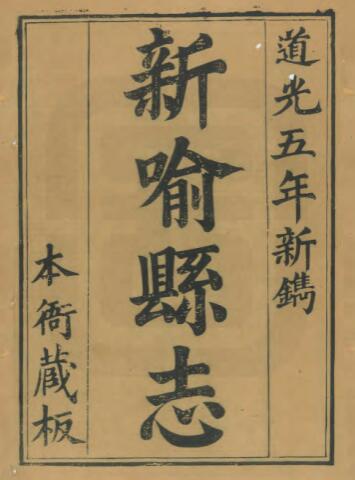 道光五年新鐫
新喻縣志
本衙藏板